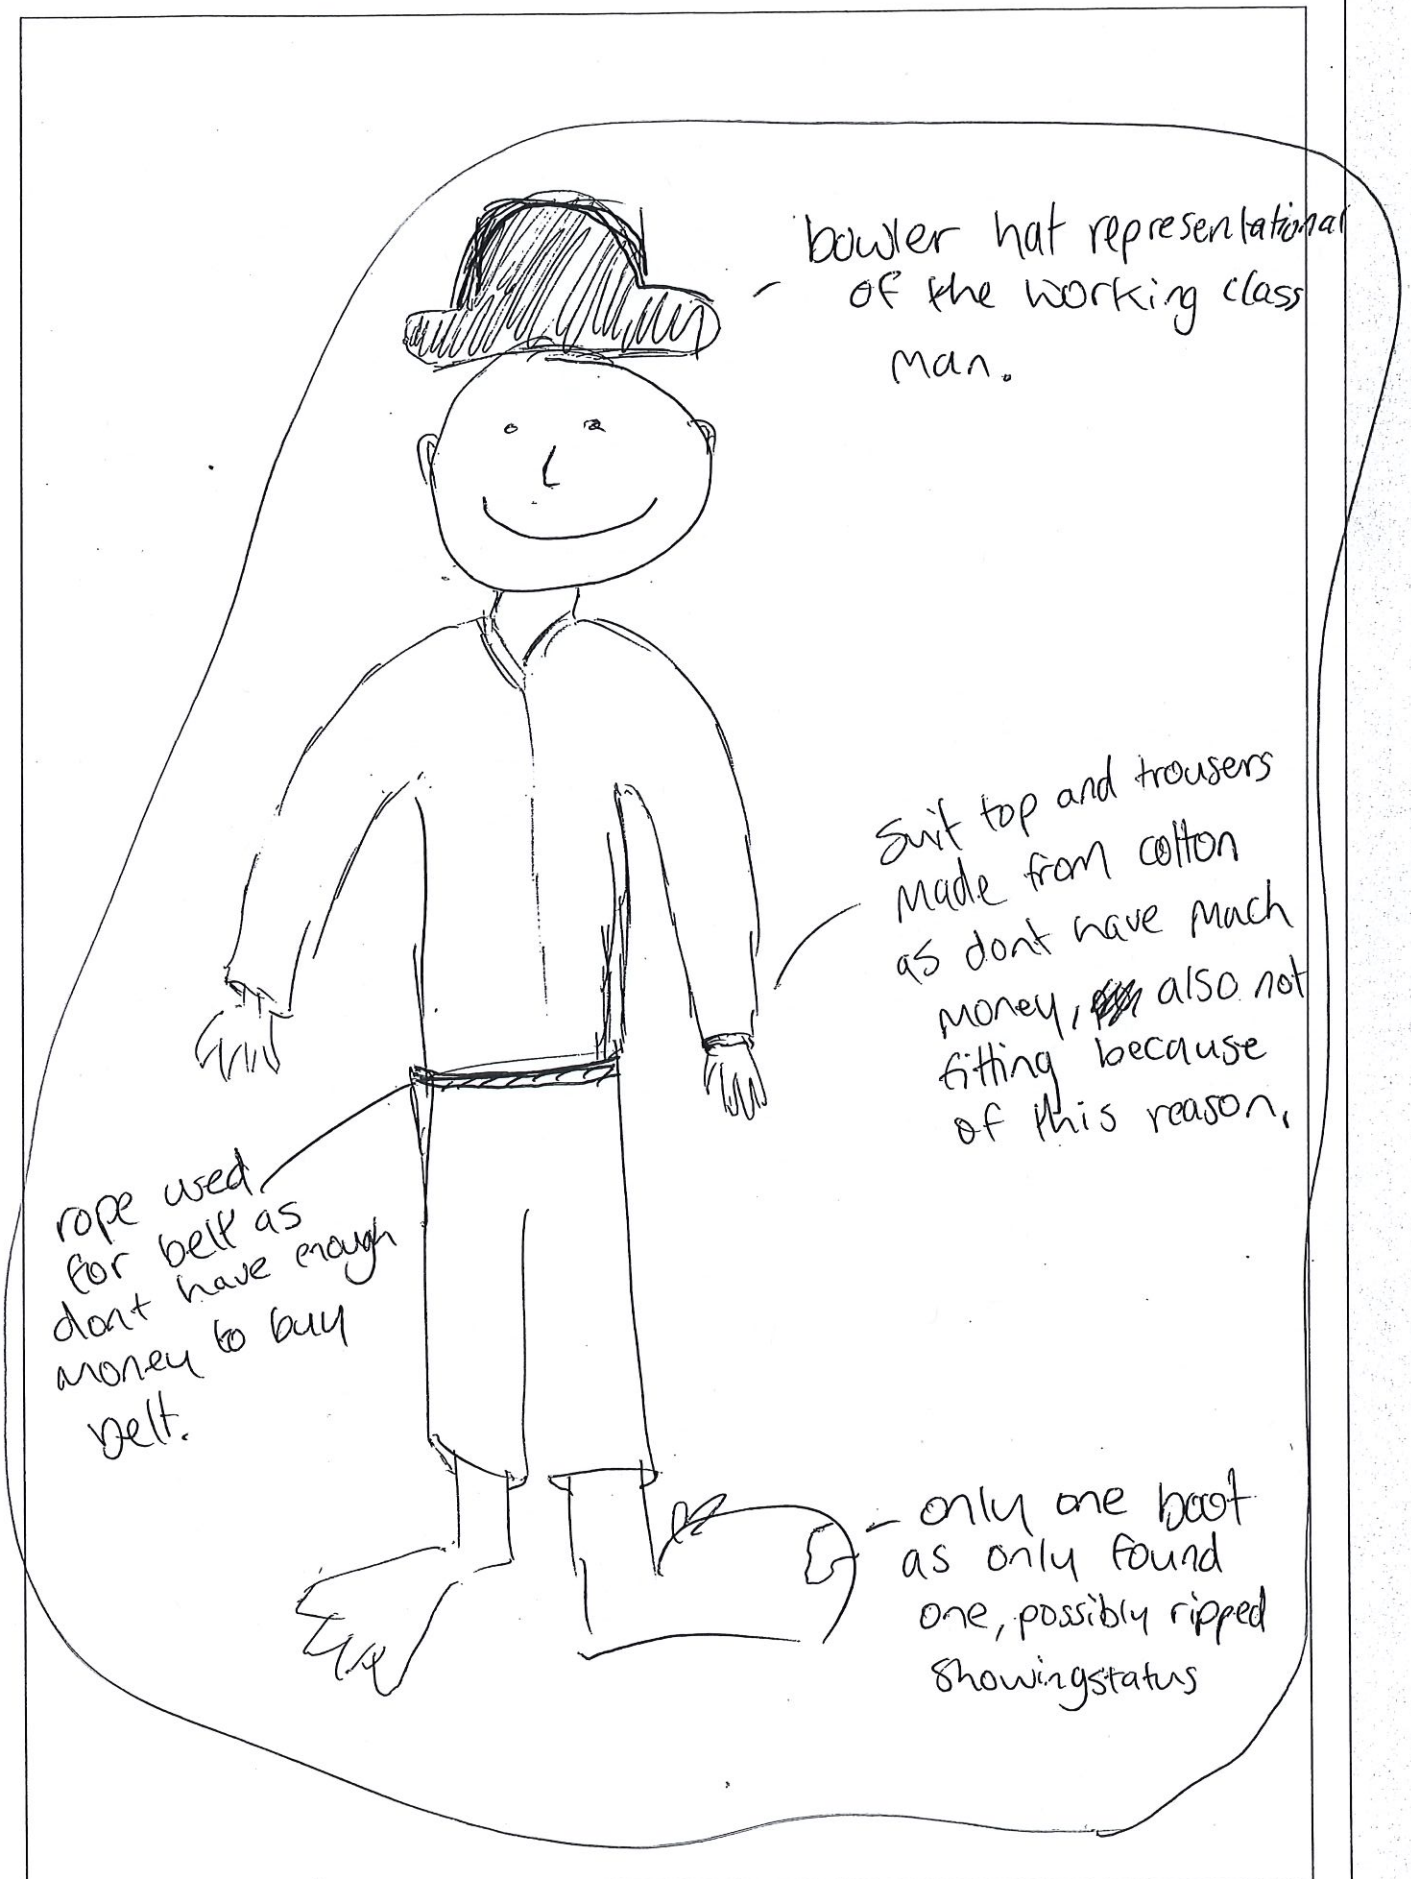 bowler hat representational
of the working class
man.
Suit top and trousers
made from cotton
as dont have much
money, also not
fitting because
of this reason,
rope used
for belt as
dont have enough
money to buy
belt.
only one boot
as only found
one, possibly ripped
showing status